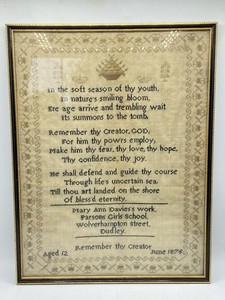 In the soft season of thy youth,
In nature's smiling bloom,
Ere age arrive and trembling wait
Its summons to the tomb,
Remember thy Creator, GOD,
For him thy pow'rs employ,
Make him thy fear, thy love, thy hope,
Thy confidence, thy joy.
He shall defend and guide thy course
Through life's uncertain sea,
Till thou art landed on the shore
Of bless'd eternity.
Mary Ann Davies's work,
Parsons Girls School,
Wolverhampton street,
Dudley.
Remember thy Creator
Aged 12 June 1874.